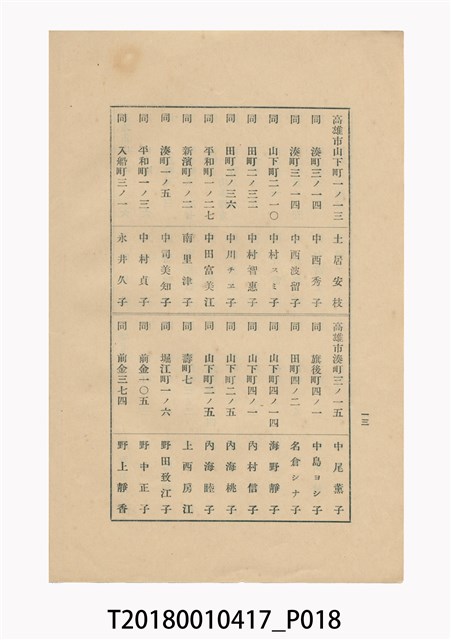 高雄市山下町一ノ一三 土居安枝
同 湊町三ノ一四 中西秀子
同 湊町三ノ一四 中西波留子
同 山下町二ノ一〇 中村スミ子
同 田町二ノ三二 中村智惠子
同 田町二ノ三六 中川チヱ子
同 平和町一ノ二七 中田富美江
同 新濱町一ノ二 南里津子
同 湊町一ノ五 中司美知子
同 平和町一ノ三 中村貞子
同 入船町三ノ一 永井久子
高雄市湊町三ノ一五 中尾薫子
同 旗後町四ノ一 中島ヨシ子
同 田町四ノ二 名倉シナ子
同 山下町四ノ一四 海野靜子
同 山下町四ノ一 內村信子
同 山下町二ノ五 內海桃子
同 山下町二ノ五 內海睦子
同 壽町七 上西房江
同 堀江町一ノ六 野田致江子
同 前金一〇五 野中正子
同 前金三七四 野上靜香
一三
T20180010417_P018